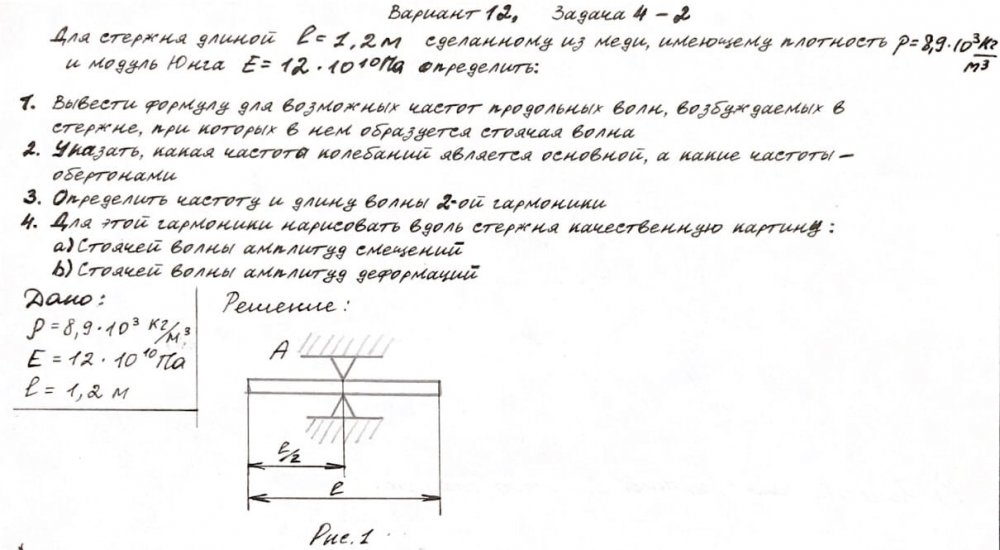 Вариант 12, Задача 4-2
Для стержня длиной l = 1,2 м сделанному из меди, имеющему плотность ρ = 8,9 · 10³ кг/м³
и модуль Юнга E = 12 · 10¹⁰ Па определить:
1. Вывести формулу для возможных частот продольных волн, возбуждаемых в
стержне, при которых в нем образуется стоячая волна
2. Указать, какая частота колебаний является основной, а какие частоты –
обертонами
3. Определить частоту и длину волны 2-ой гармоники
4. Для этой гармоники нарисовать вдоль стержня качественную картину:
а) Стоячей волны амплитуд смещений
b) Стоячей волны амплитуд деформаций
Дано:
ρ = 8,9 · 10³ кг/м³
E = 12 · 10¹⁰ Па
l = 1,2 м
Решение:
A
l/2
l
Рис. 1